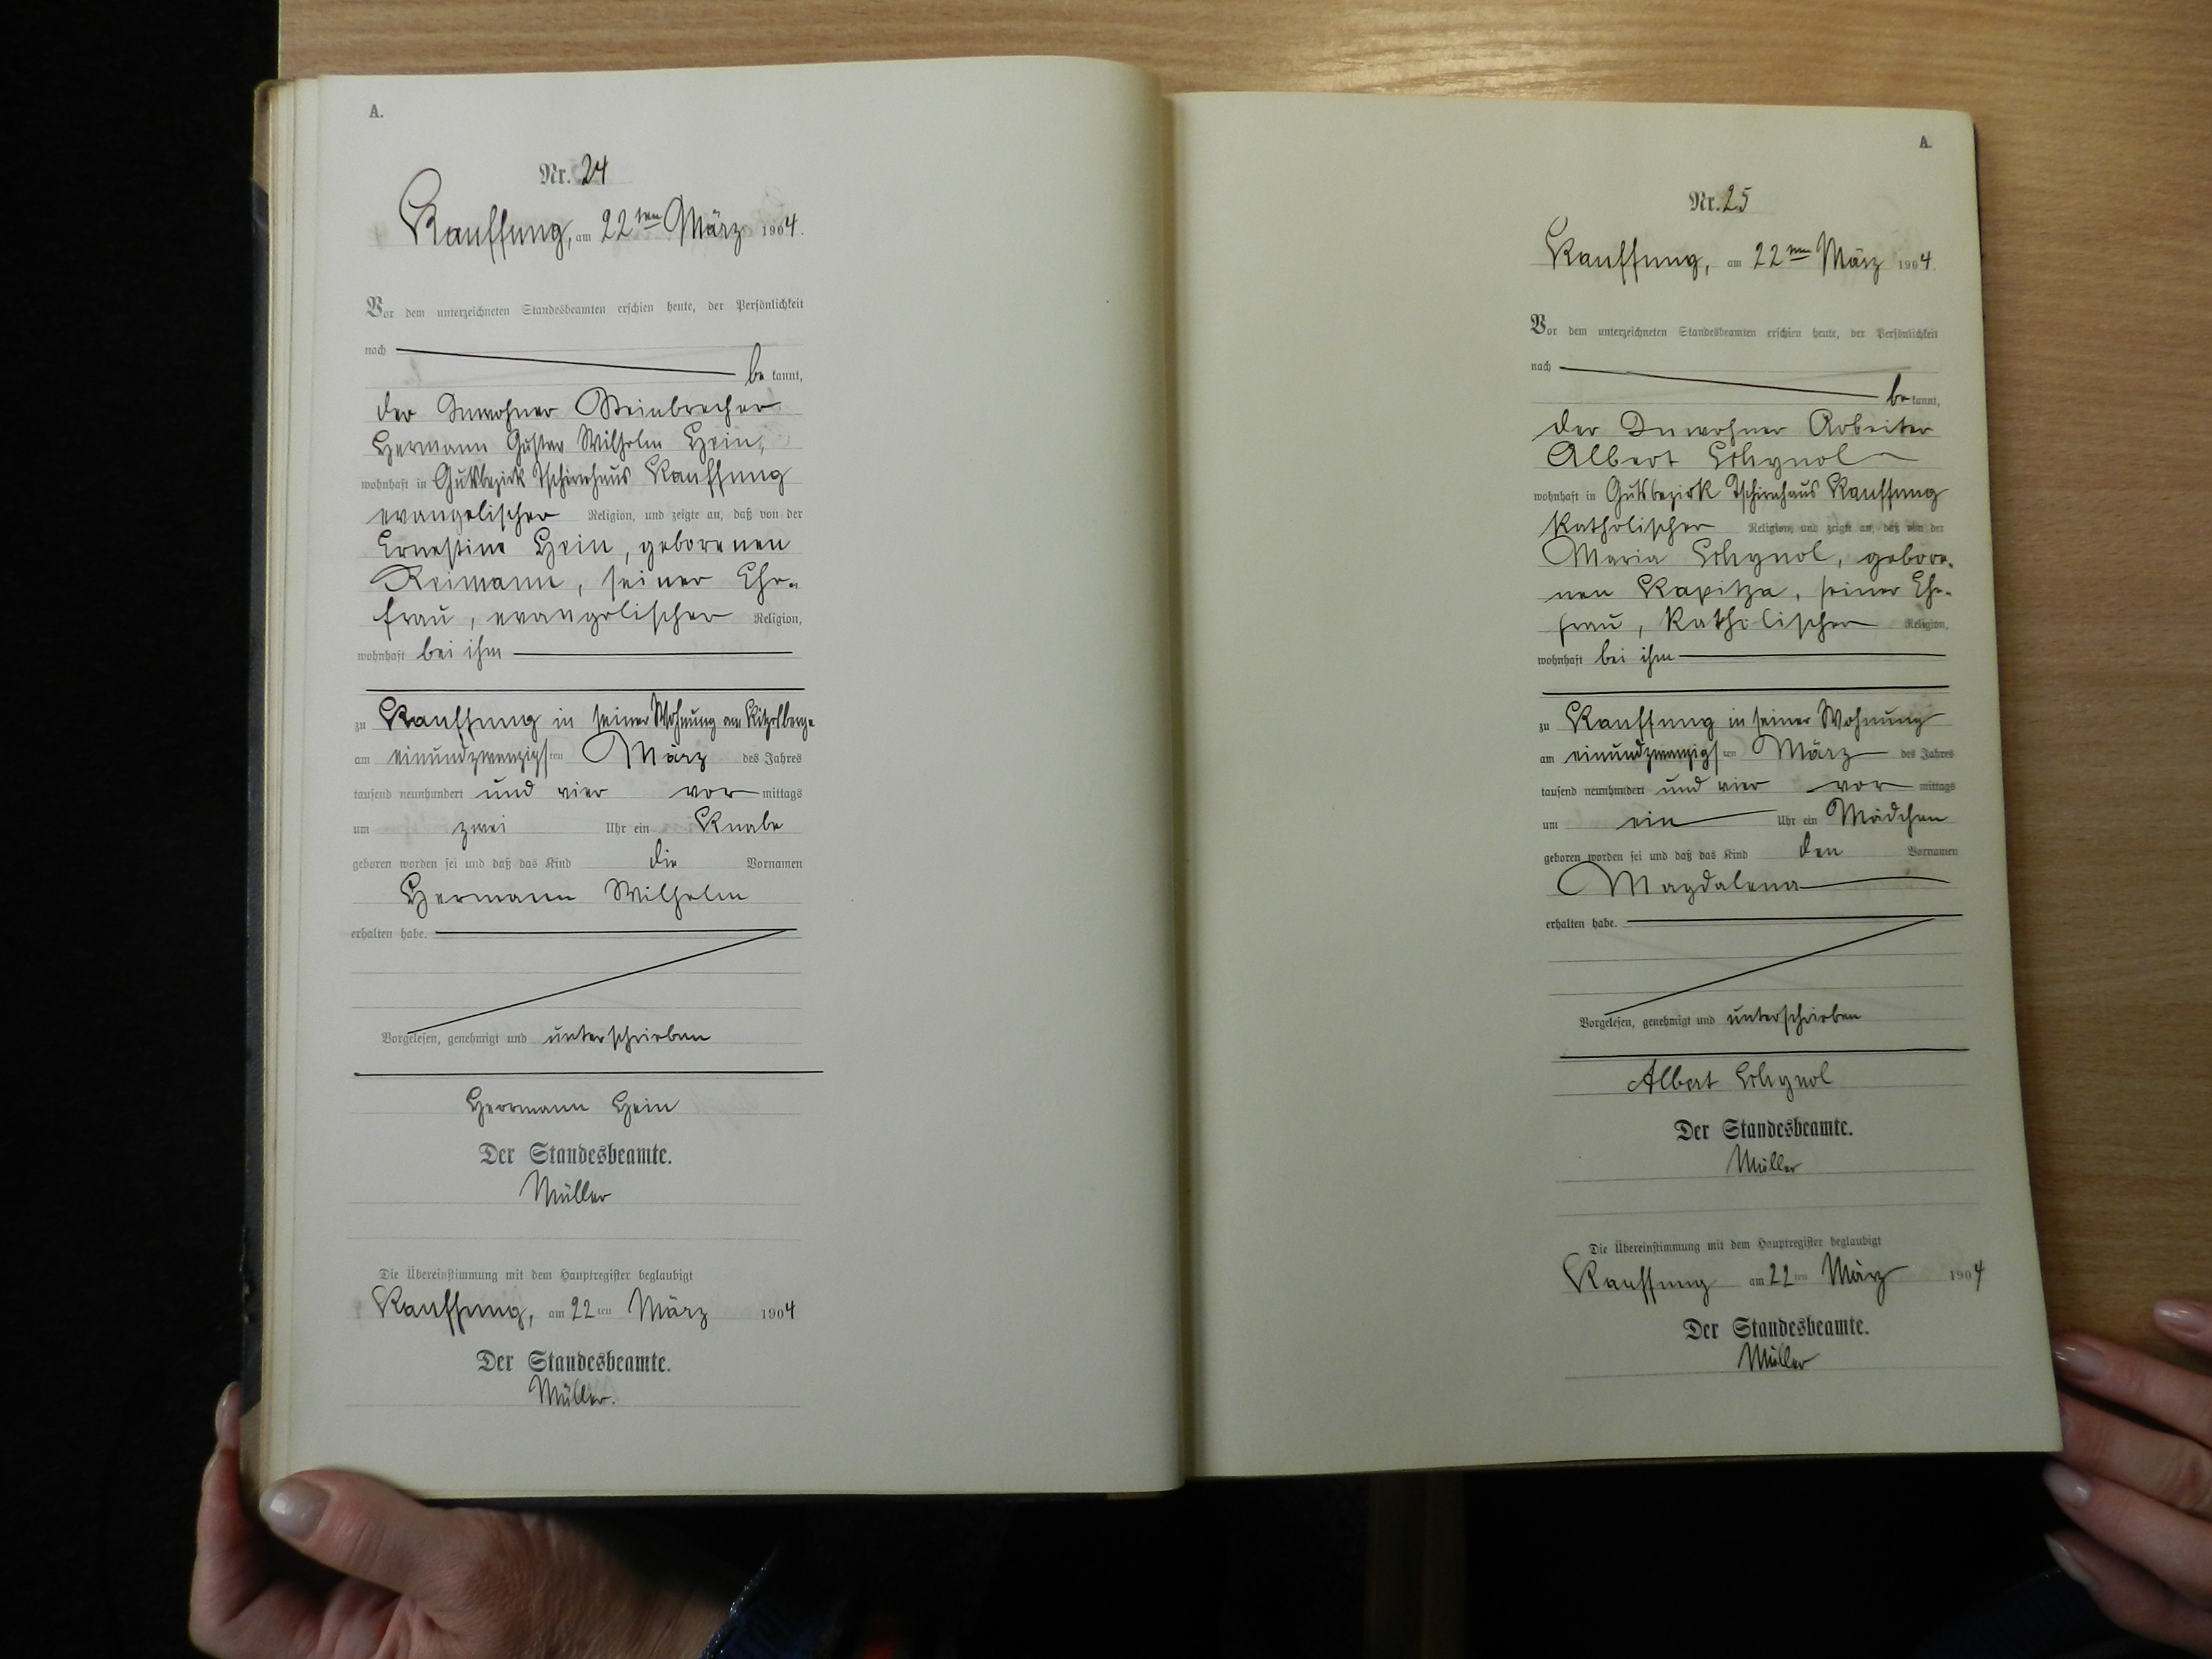 A.
Nr. 24
Kauffung, am 22ten März 1904.
Vor dem unterzeichneten Standesbeamten erschien heute, der Persönlichkeit
nach
bekannt,
der Inwohner Steinbrecher
Hermann Gustav Wilhelm Hein,
wohnhaft in Gutsbezirk Tschirnhaus Kauffung
evangelischer Religion, und zeigte an, daß von der
Ernestine Hein, geborenen
Reimann, seiner Ehe-
frau, evangelischer Religion,
wohnhaft bei ihm
zu Kauffung in seiner Wohnung am Kitzelberge
am einundzwanzigsten März des Jahres
tausend neunhundert und vier vormittags
um zwei Uhr ein Knabe
geboren worden sei und daß das Kind die Vornamen
Hermann Wilhelm
erhalten habe.
Vorgelesen, genehmigt und unterschrieben
Herrmann Hein
Der Standesbeamte.
Müller
Die Übereinstimmung mit dem Hauptregister beglaubigt
Kauffung, am 22ten März 1904
Der Standesbeamte.
Müller.
A.
Nr. 25
Kauffung, am 22ten März 1904.
Vor dem unterzeichneten Standesbeamten erschien heute, der Persönlichkeit
nach
bekannt,
der Inwohner Arbeiter
Albert
wohnhaft in Gutsbezirk Tschirnhaus Kauffung
katholischer Religion, und zeigte an, daß von der
Maria gebore-
nen Kapitza, seiner Ehe-
frau, katholischer Religion,
wohnhaft bei ihm
zu Kauffung in seiner Wohnung
am einundzwanzigsten März des Jahres
tausend neunhundert und vier vormittags
um ein Uhr ein Mädchen
geboren worden sei und daß das Kind den Vornamen
Magdalena
erhalten habe.
Vorgelesen, genehmigt und unterschrieben
Albert
Der Standesbeamte.
Müller
Die Übereinstimmung mit dem Hauptregister beglaubigt
Kauffung am 22ten März 1904
Der Standesbeamte.
Müller